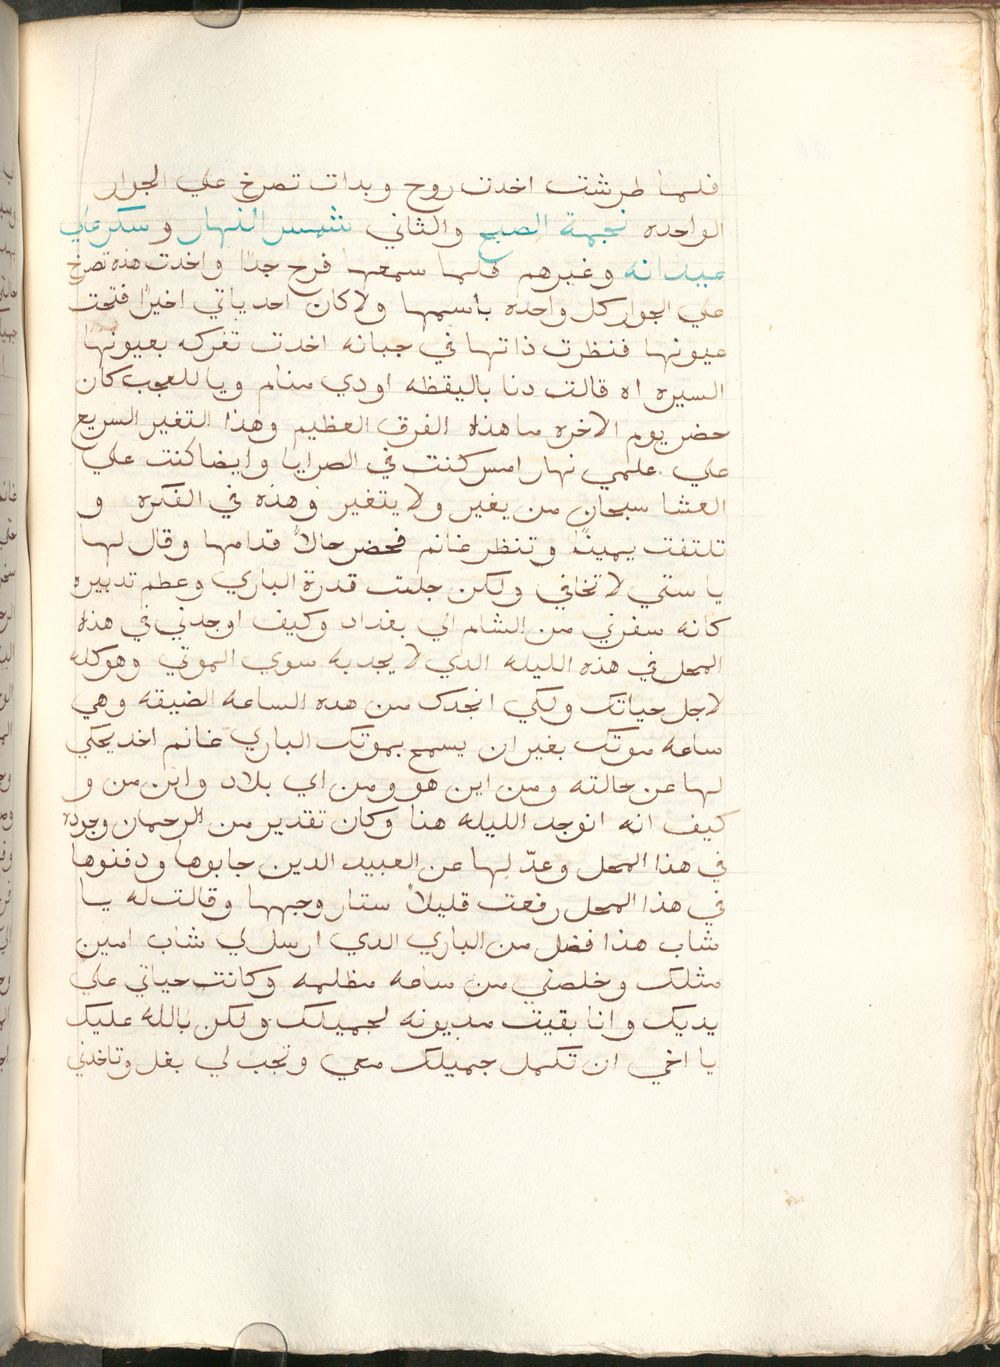 فلما طرشت اخدت روح وبدات تصرخ علي الجوار
الواحده نجمة الصبح والثاني شمس النهار وسكر علي
عبيدانه وغيرهم فلما سمعها فرح جدًا واخدت هده تصرخ
علي الجوار كل واحده باسمها ولا كان احد ياتي اخيرًا فتحت
عيونها فنظرت ذاتها في جبانه اخدت تفركه بعيونها
السيره اه قالت دنا باليقظه اودي منام ويا للعجب كان
حضر يوم الاخره ما هذه الفرق العظيم وهذا التغير السريع
علي علمي نهار امس كنت في الصرايا وايضا كنت علي
العشا سبحان من يغير ولا يتغير وهذه في الفكره و
تلتفت يمينًا وتنظر غانم فحضر حالاً قدامها وقال لها
يا ستي لا تخافي ولكن جلت قدرة الباري وعظم تدبيره
كانه سفرني من الشام الي بغداد وكيف اوجدني في هذه
المحل في هذه الليله الدي لا يجد به سوي الموتي وهو كله
لاجل حياتك ولكي انجدك من هده الساعه الضيقه وهي
ساعه موتك بغير ان يسمع بموتك الباري غانم اخد يحكي
لها عن حالته ومن اين هو ومن اي بلاد وابن من و
كيف انه انوجد الليله هنا وكان تقدير من الرحمان وجوده
في هذا المحل وعدّ لها عن العبيد الدين جابوها ودفنوها
في هذا المحل رفعت قليلاً ستار وجهها وقالت له يا
شاب هذا فضل من الباري الدي ارسل لي شاب امين
مثلك وخلصني من ساعه مظلمه وكانت حياتي علي
يديك وانا بقيت مديونه لجميلك ولكن بالله عليك
يا اخي ان تكمل جميلك معي وتجب لي بغل وتاخدني